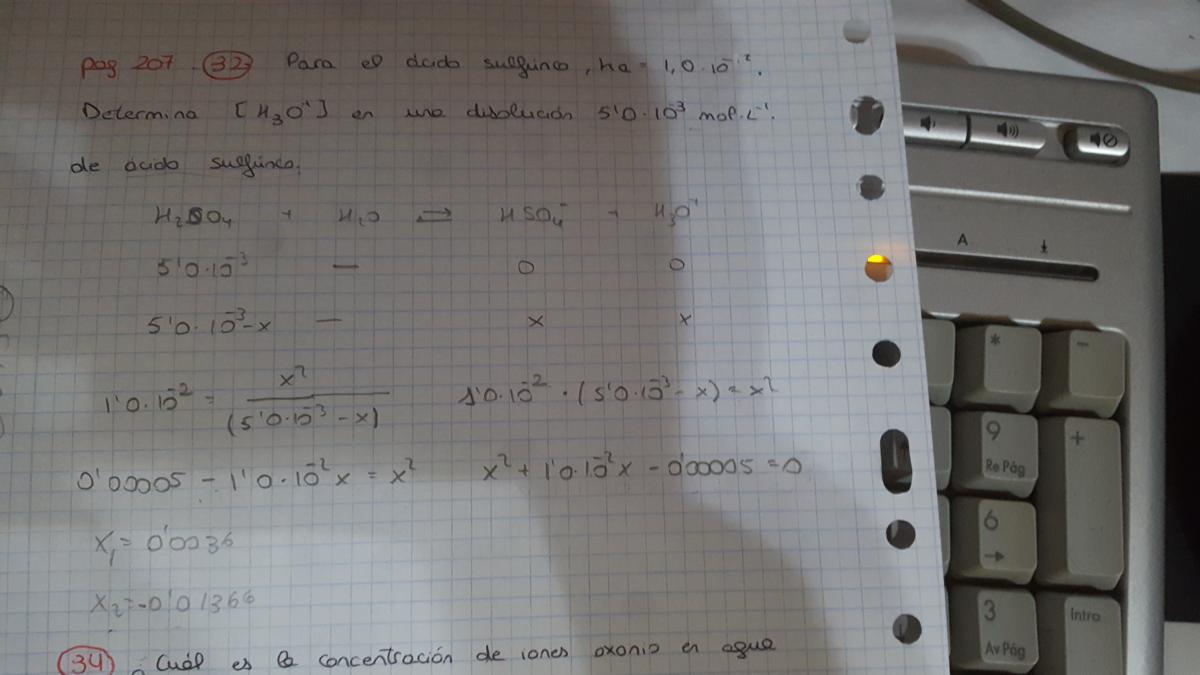 pag 207. 32 Para el ácido sulfúrico, Ka = 1,0·10⁻².
Determina [H₃O⁺] en una disolución 5'0·10⁻³ mol·L⁻¹.
de ácido sulfúrico.
H₂SO₄ + H₂O ⇌ HSO₄⁻ + H₃O⁺
5'0·10⁻³ — 0 0
5'0·10⁻³-x — x x
1'0·10⁻² = x² / (5'0·10⁻³ - x) 1'0·10⁻² · (5'0·10⁻³ - x) = x²
0'00005 - 1'0·10⁻²x = x² x² + 1'0·10⁻²x - 0'00005 = 0
X₁ = 0'0036
X₂ = -0'01366
34 ¿Cuál es la concentración de iones oxonio en agua
A
*
-
9
Re Pág
+
6
3
Av Pág
Intro